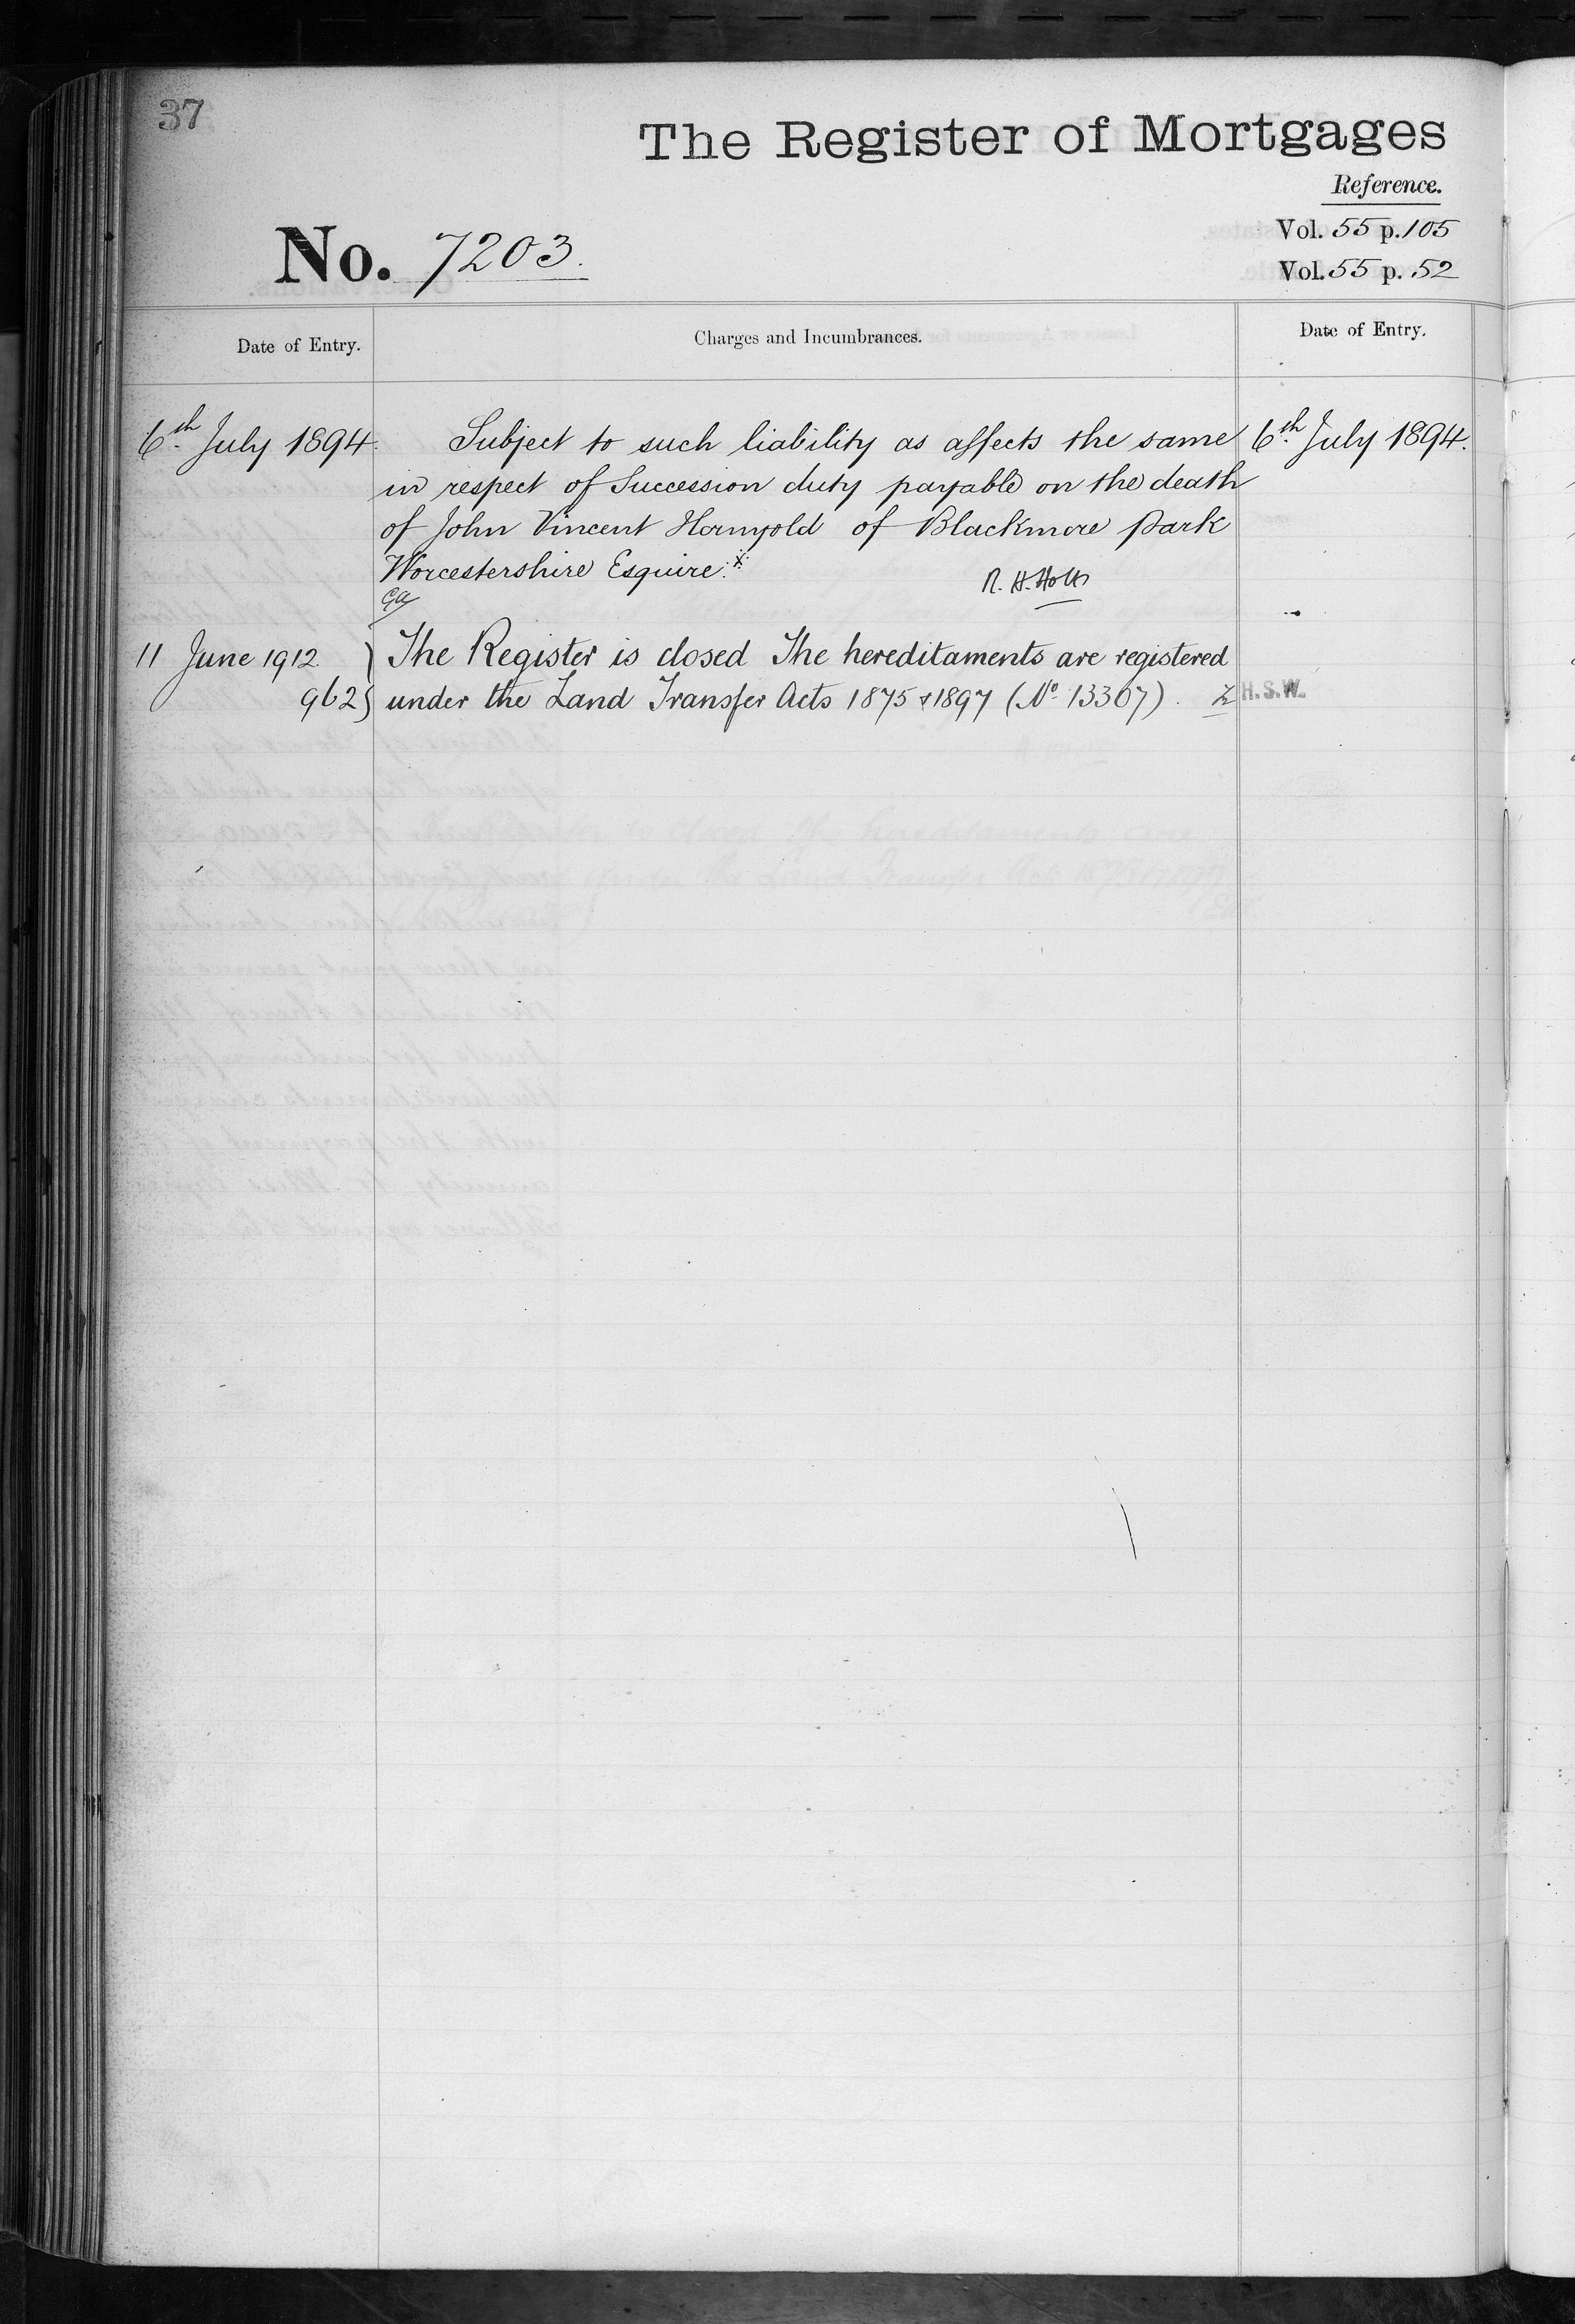 37
The Register of Mortgages
Reference.
No. 7203.
Vol. 55 p. 105
Vol. 55 p. 52
Date of Entry.
Charges and Incumbrances.
Date of Entry.
6th July 1894.
Subject to such liability as affects the same
in respect of Succession duty payable on the death
of John Vincent Hornyold of Blackmore Park
Worcestershire Esquire.
R. H. Holt
6th July 1894.
11 June 1912
962
The Register is closed The hereditaments are registered
under the Land Transfer Acts 1875 & 1897 (No 13367).
H.S.W.